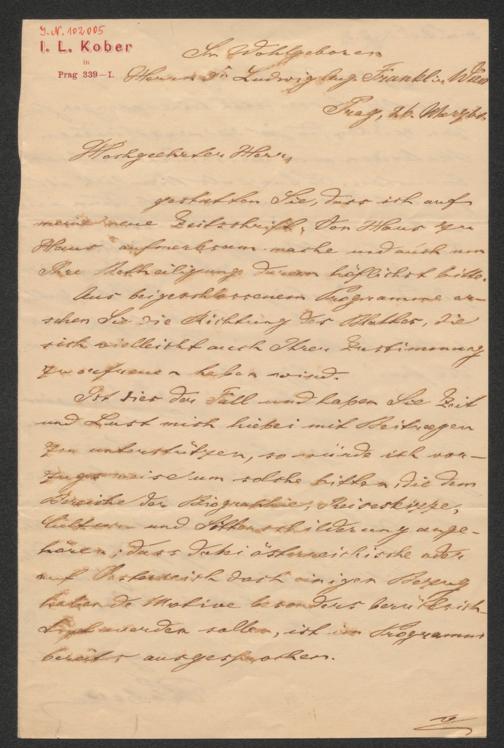 J. N. 102005
I. L. Kober
in
Prag 339–I.
Sr. Wohlgeboren
Herrn Dr. Ludwig Aug. Frankl in Wien
Prag, 26. März
Hochgeehrter Herr,
gestatten Sie, dass ich auf
meine neue Zeitschrift „Von Haus zu
Haus" aufmerksam mache und auch um
Ihre Betheiligung daran höflichst bitte.
Aus beigeschlossenem Programme er-
sehen Sie die Richtung des Blattes, die
sich vielleicht auch Ihrer Zustimmung
zu erfreuen haben wird.
Ist dies der Fall und haben Sie Zeit
und Lust mich hiebei mit Beiträgen
zu unterstützen, so würde ich vor-
zugsweise um solche bitten, die dem
Bereiche der Biographie, Reiseskizze,
Cultur- und Sittenschilderung ange-
hören; dass dabei österreichische oder
auf Oesterreich doch einigen Bezug
habende Motive besonders berücksich-
tigt werden sollen, ist im Programm
bereits ausgesprochen.